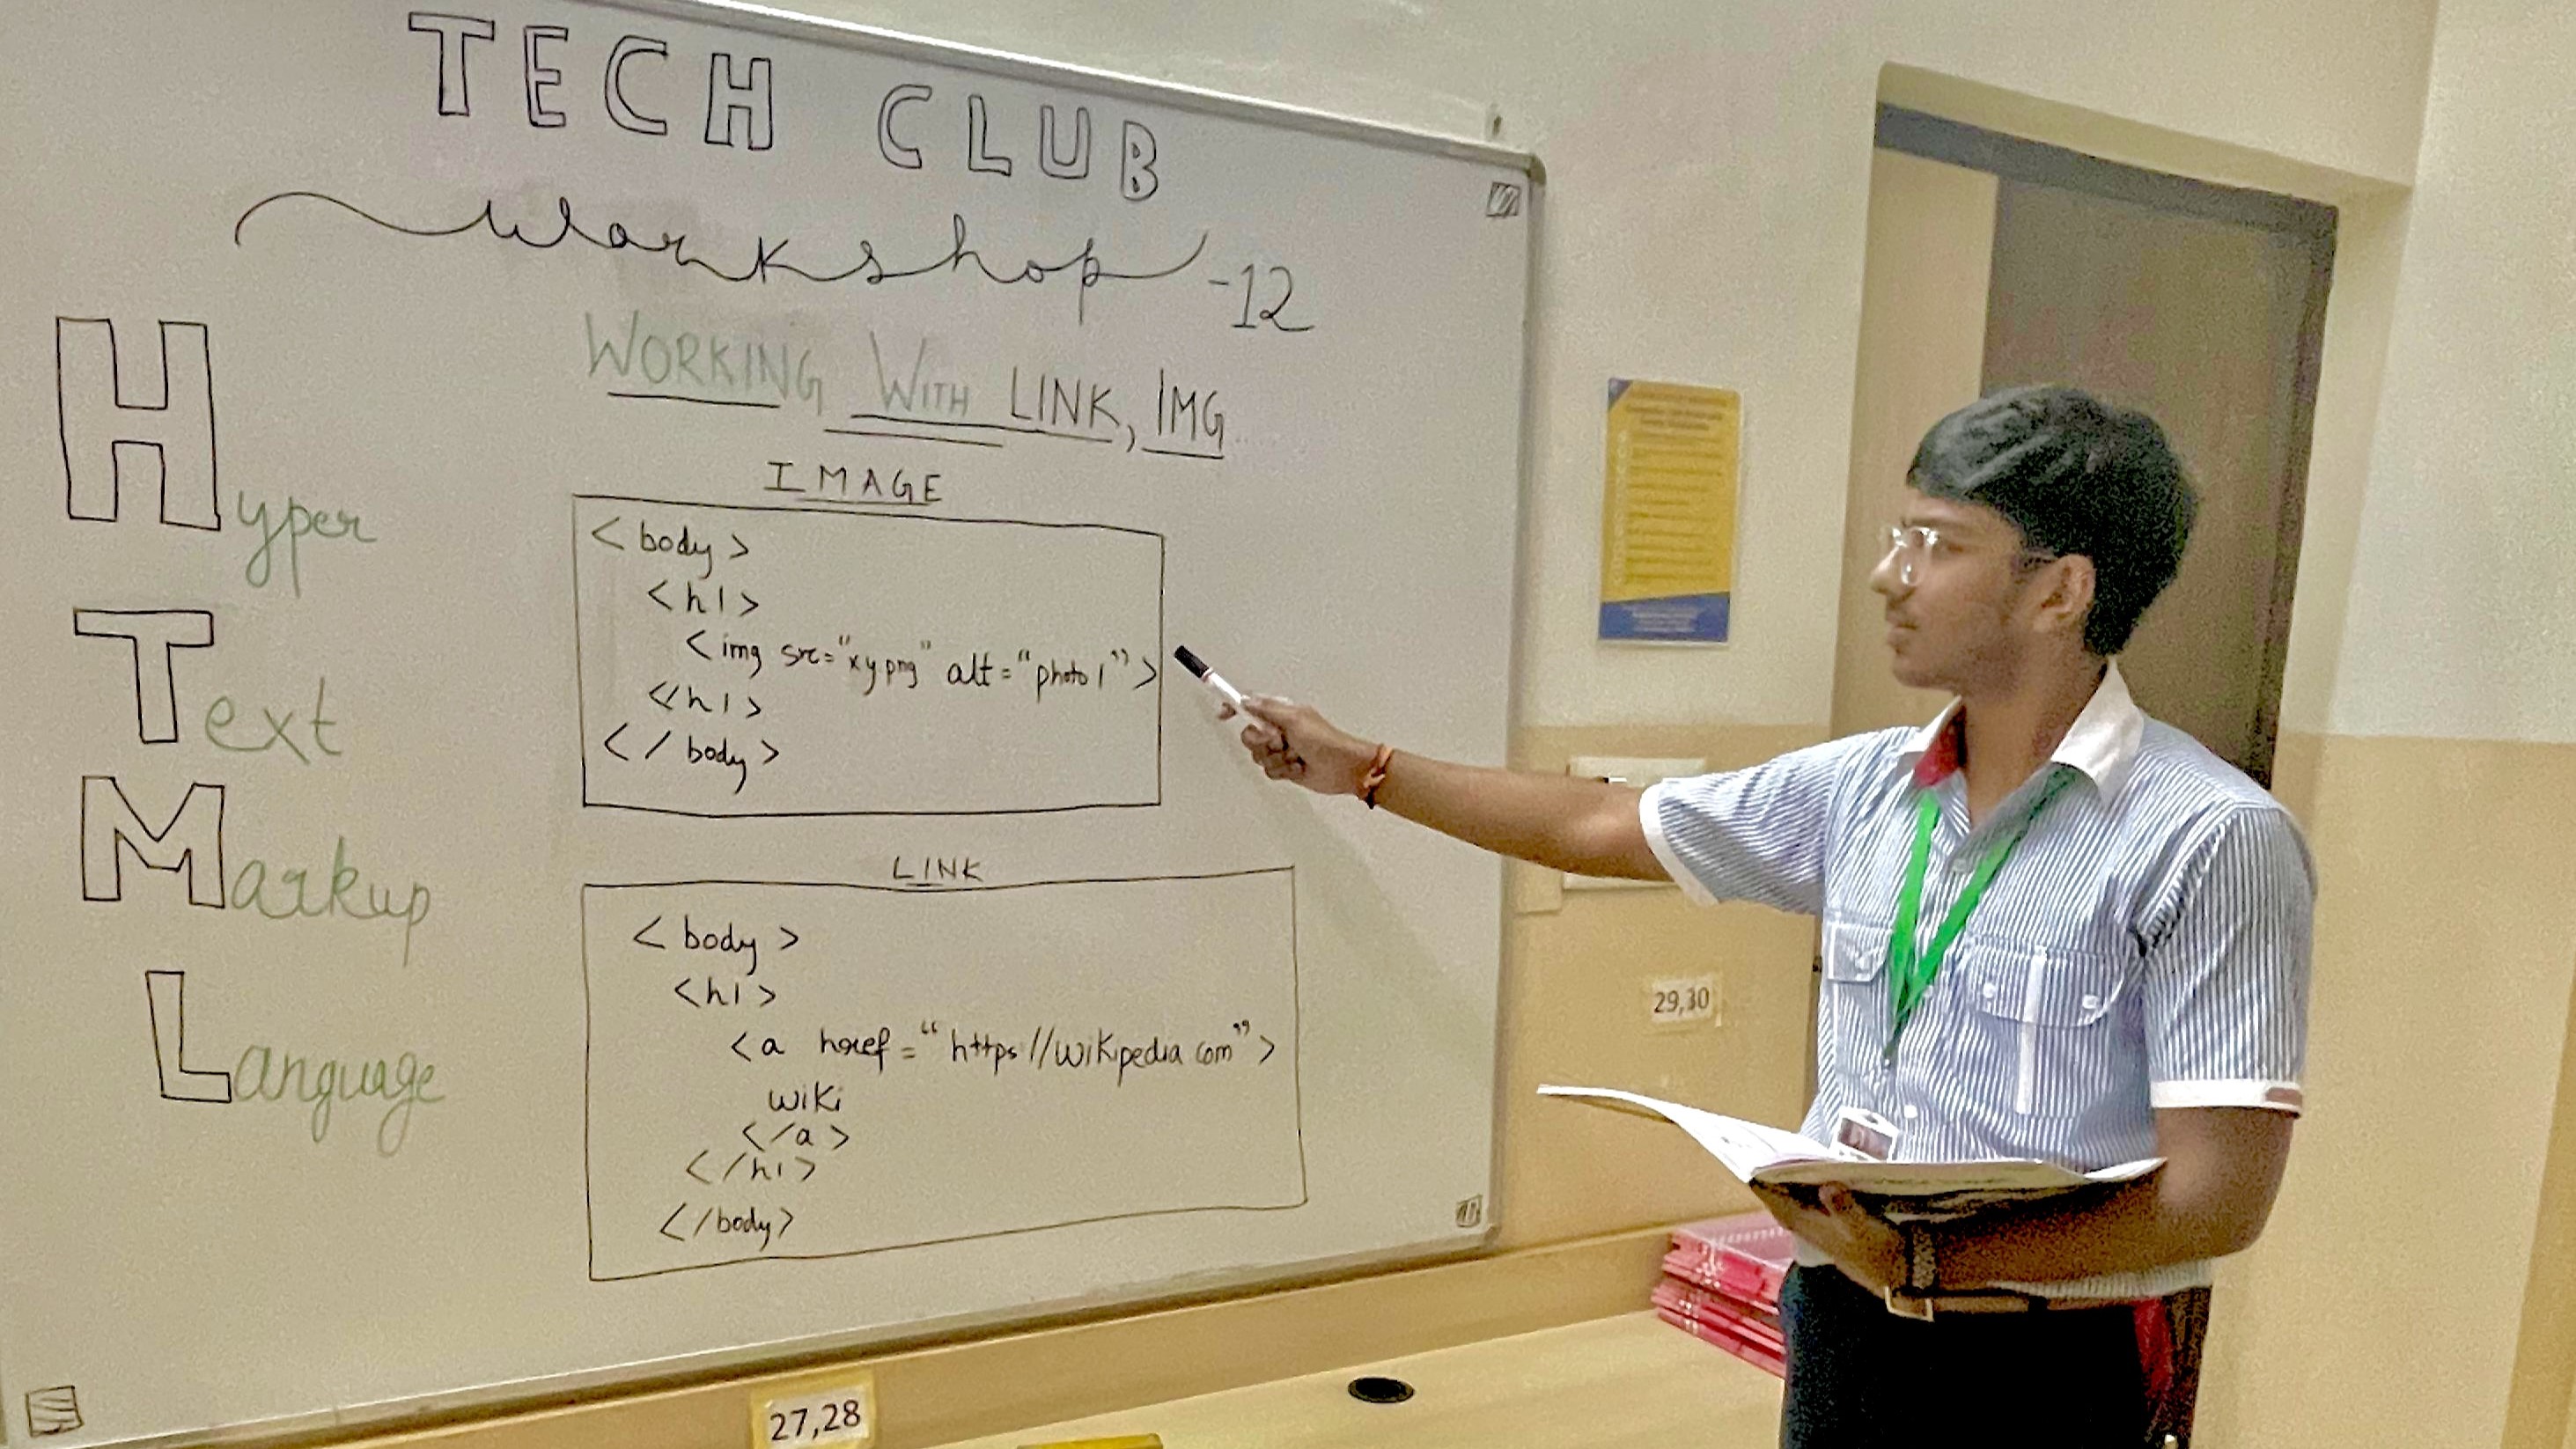 TECH CLUB
Workshop -12
WORKING WITH LINK, IMG
Hyper
Text
Markup
Language
IMAGE
<body>
<h1>
<img src="xy png" alt="photo1">
</h1>
</body>
LINK
<body>
<h1>
<a href="https//wikipedia com">
wiki
</a>
</h1>
</body>
29,30
27,28